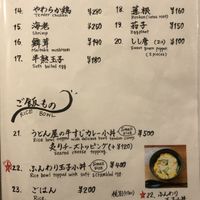 14. やわらか鶏 ¥250
Tender chicken
15. 海老 ¥250
Shrimp
16. 舞茸 ¥190
Maitake mushroom
17. 半熟玉子 ¥150
Soft boiled egg
18. 蓮根 ¥160
19. 茄子 ¥150
Eggplant
20. しし唐
ご飯もの
RICE BOWL
21. うどん屋の牛すじカレー小丼 ¥500
炙りチーズトッピング(+¥120)
Seared cheese topping
22. ふんわり玉子小丼 ¥400
Rice bowl topped with soft scrambled egg
23. ごはん ¥200
Rice
22. ふんわり
玉子小丼